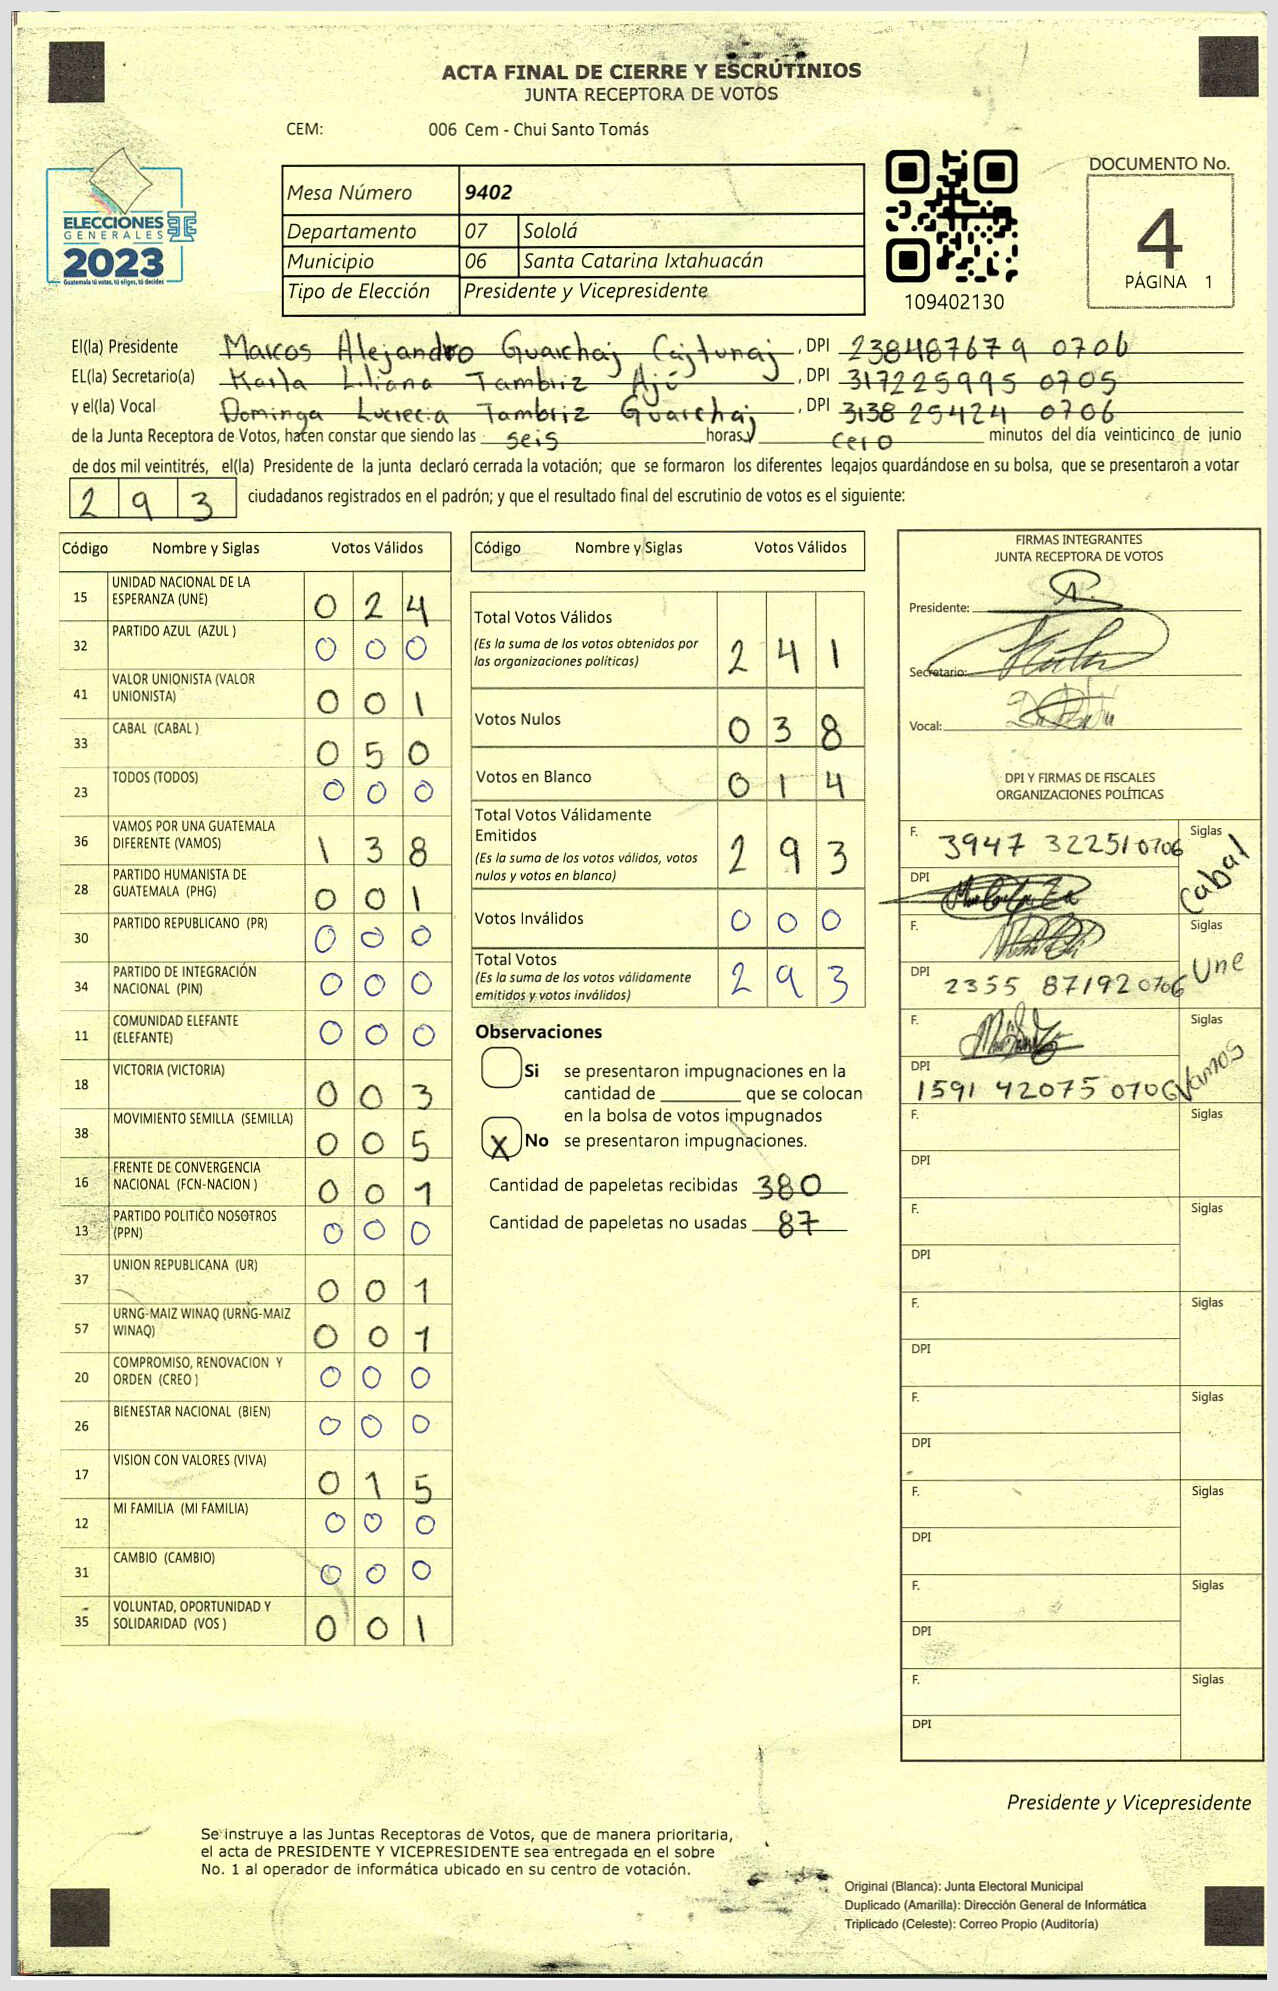 ACTA FINAL DE CIERRE Y ESCRUTINIOS
JUNTA RECEPTORA DE VOTOS
CEM: 006 Cem - Chui Santo Tomás
ELECCIONES
GENERALES
2023
Guatemala tú votas, tú eliges, tú decides
Mesa Número 9402
Departamento 07 Sololá
Municipio 06 Santa Catarina Ixtahuacán
Tipo de Elección Presidente y Vicepresidente
109402130
DOCUMENTO No.
4
PÁGINA 1
El(la) Presidente Marcos Alejandro Guarchaj Cajtunaj, DPI 238487679 0706
EL(la) Secretario(a) Karla Liliana Tambriz Ajú, DPI 317225995 0705
y el(la) Vocal Dominga Lucrecia Tambriz Guarchaj, DPI 3138 25424 0706
de la Junta Receptora de Votos, hacen constar que siendo las seis horas cero minutos del día veinticinco de junio
de dos mil veintitrés, el(la) Presidente de la junta declaró cerrada la votación; que se formaron los diferentes legajos guardándose en su bolsa, que se presentaron a votar
293 ciudadanos registrados en el padrón; y que el resultado final del escrutinio de votos es el siguiente:
Código Nombre y Siglas Votos Válidos
15 UNIDAD NACIONAL DE LA ESPERANZA (UNE) 0 2 4
32 PARTIDO AZUL (AZUL ) 0 0 0
41 VALOR UNIONISTA (VALOR UNIONISTA) 0 0 1
33 CABAL (CABAL ) 0 5 0
23 TODOS (TODOS) 0 0 0
36 VAMOS POR UNA GUATEMALA DIFERENTE (VAMOS) 1 3 8
28 PARTIDO HUMANISTA DE GUATEMALA (PHG) 0 0 1
30 PARTIDO REPUBLICANO (PR) 0 0 0
34 PARTIDO DE INTEGRACIÓN NACIONAL (PIN) 0 0 0
11 COMUNIDAD ELEFANTE (ELEFANTE) 0 0 0
18 VICTORIA (VICTORIA) 0 0 3
38 MOVIMIENTO SEMILLA (SEMILLA) 0 0 5
16 FRENTE DE CONVERGENCIA NACIONAL (FCN-NACION ) 0 0 1
13 PARTIDO POLITICO NOSOTROS (PPN) 0 0 0
37 UNION REPUBLICANA (UR) 0 0 1
57 URNG-MAIZ WINAQ (URNG-MAIZ WINAQ) 0 0 1
20 COMPROMISO, RENOVACION Y ORDEN (CREO ) 0 0 0
26 BIENESTAR NACIONAL (BIEN) 0 0 0
17 VISION CON VALORES (VIVA) 0 1 5
12 MI FAMILIA (MI FAMILIA) 0 0 0
31 CAMBIO (CAMBIO) 0 0 0
35 VOLUNTAD, OPORTUNIDAD Y SOLIDARIDAD (VOS ) 0 0 1
Código Nombre y Siglas Votos Válidos
Total Votos Válidos
(Es la suma de los votos obtenidos por las organizaciones políticas) 2 4 1
Votos Nulos 0 3 8
Votos en Blanco 0 1 4
Total Votos Válidamente Emitidos
(Es la suma de los votos válidos, votos nulos y votos en blanco) 2 9 3
Votos Inválidos 0 0 0
Total Votos
(Es la suma de los votos válidamente emitidos y votos inválidos) 2 9 3
Observaciones
Si se presentaron impugnaciones en la
cantidad de ________ que se colocan
en la bolsa de votos impugnados
X No se presentaron impugnaciones.
Cantidad de papeletas recibidas 380
Cantidad de papeletas no usadas 87
FIRMAS INTEGRANTES
JUNTA RECEPTORA DE VOTOS
Presidente:
Secretario:
Vocal:
DPI Y FIRMAS DE FISCALES
ORGANIZACIONES POLÍTICAS
F. 3947 32251 0706 Siglas Cabal
DPI
F. Siglas Une
DPI 2355 87192 0706
F. Siglas Vamos
DPI 1591 42075 0706
F. Siglas
DPI
F. Siglas
DPI
F. Siglas
DPI
F. Siglas
DPI
F. Siglas
DPI
F. Siglas
DPI
F. Siglas
DPI
Presidente y Vicepresidente
Se instruye a las Juntas Receptoras de Votos, que de manera prioritaria,
el acta de PRESIDENTE Y VICEPRESIDENTE sea entregada en el sobre
No. 1 al operador de informática ubicado en su centro de votación.
Original (Blanca): Junta Electoral Municipal
Duplicado (Amarilla): Dirección General de Informática
Triplicado (Celeste): Correo Propio (Auditoría)